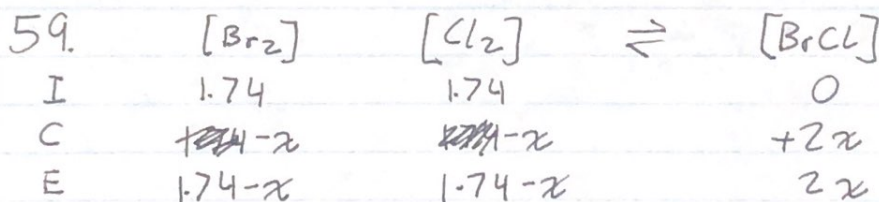 59. [Br2] [Cl2] ⇌ [BrCl]
I 1.74 1.74 0
C -x -x +2x
E 1.74-x 1.74-x 2x